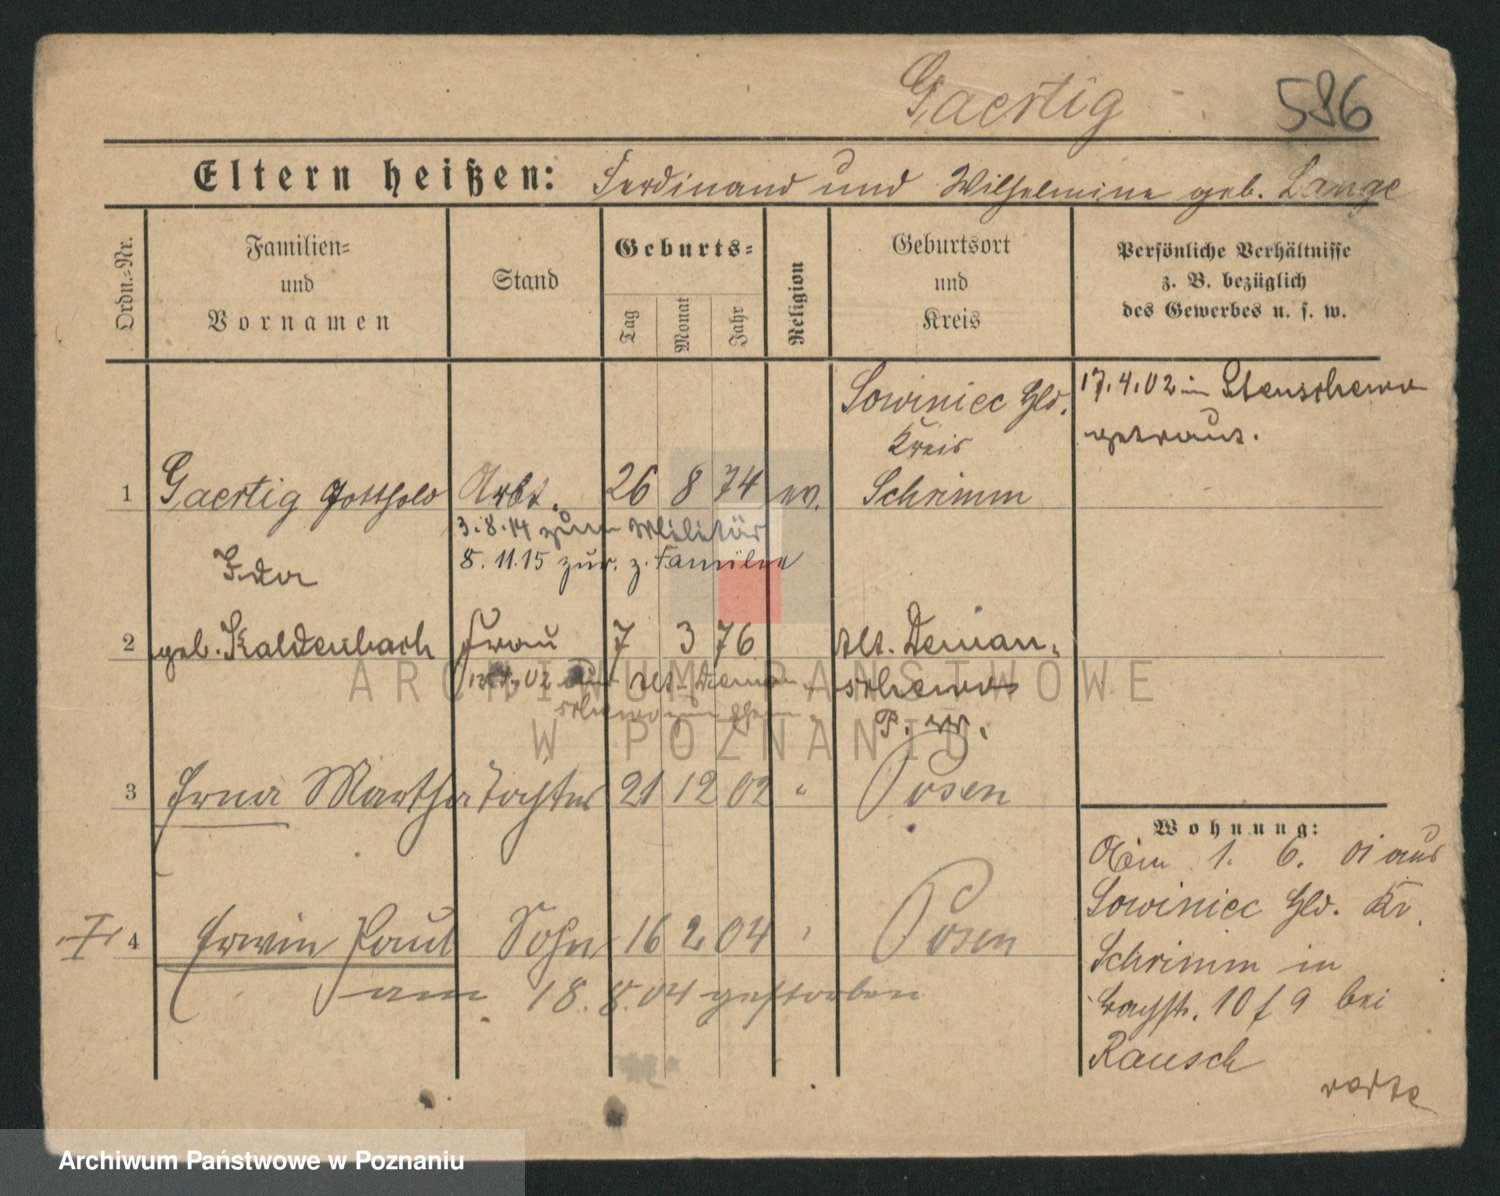 Gaertig 586
Eltern heißen: Ferdinand und Wilhelmine geb. Lange
Ordn.-Nr.
Familien-
und
Vornamen
Stand
Geburts-
Tag
Monat
Jahr
Religion
Geburtsort
und
Kreis
Persönliche Verhältnisse
z. B. bezüglich
des Gewerbes u. s. w.
Sowiniec Hld.
Kreis
17.4.02 in Stenschewo
getraut.
1 Gaertig Gotthold Arbt. 26 8 74 ev. Schrimm
3.8.14 zum Militär
8.11.15 zur. z. Familie
Ida
2 geb. Kaldenbach Frau 7 3 76 Alt. Deman-
schewo
P. W.
3 Erna Martha Tochter 21 12 02 " Posen
4 Erwin Paul Sohn 16 2 04 Posen
am 18.8.04 gestorben
Wohnung:
1. 6. 01 aus
Sowiniec Hld. Kr.
Schrimm in
10 f 9 bei
Rausch
verte
ARCHIWUM PAŃSTWOWE
W POZNANIU
Archiwum Państwowe w Poznaniu